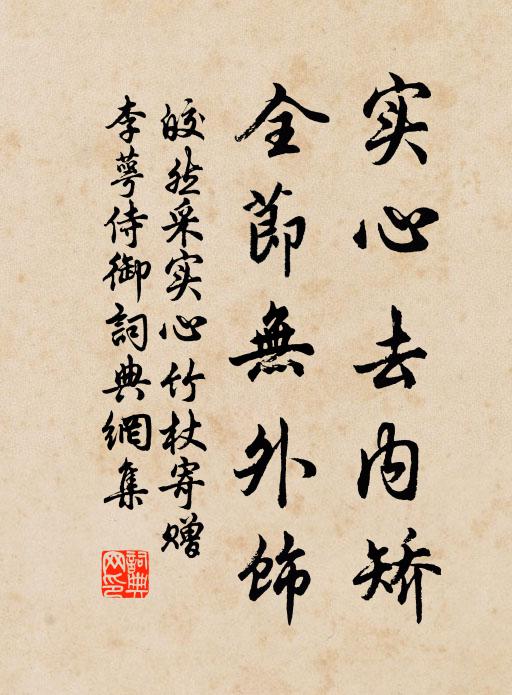 实心去内矫
全節無外飾
皎然采实心竹杖寄赠
李萼侍御詞典網集
詞典网印